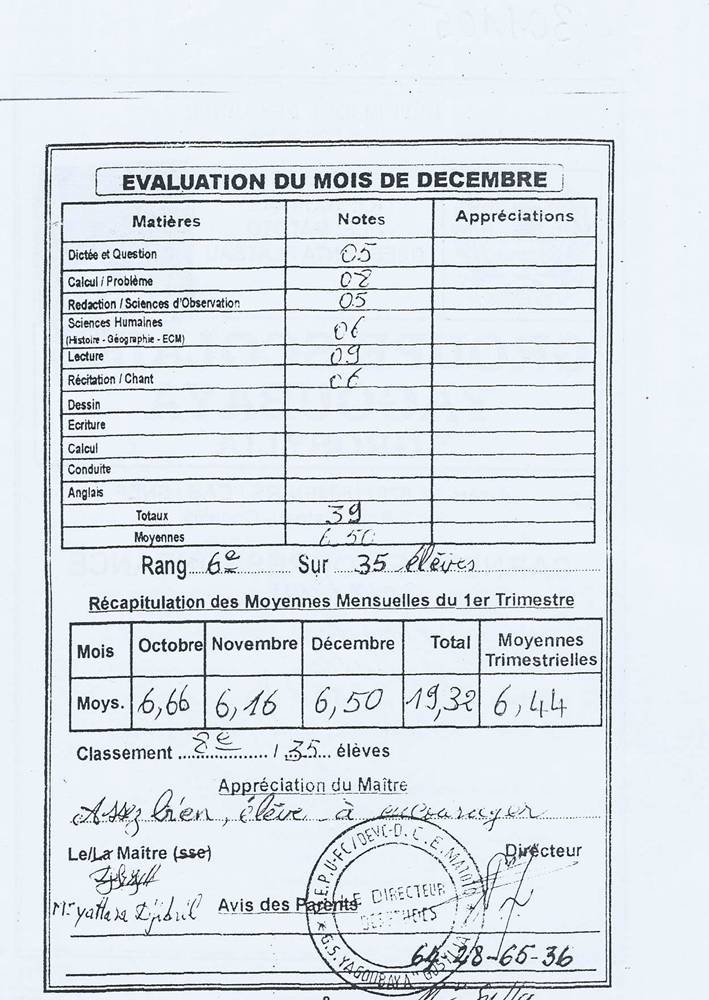 EVALUATION DU MOIS DE DECEMBRE
Matières Notes Appréciations
Dictée et Question 05
Calcul / Problème 08
Redaction / Sciences d'Observation 05
Sciences Humaines 06
(Histoire - Géographie - ECM)
Lecture 09
Récitation / Chant 06
Dessin
Ecriture
Calcul
Conduite
Anglais
Totaux 39
Moyennes 6,50
Rang 6e Sur 35 élèves
Récapitulation des Moyennes Mensuelles du 1er Trimestre
Mois Octobre Novembre Décembre Total Moyennes Trimestrielles
Moys. 6,66 6,16 6,50 19,32 6,44
Classement 8e / 35 élèves
Appréciation du Maître
Assez bien, élève à encourager
Le/La Maître (sse) Directeur
Mr yattara Djibril
Avis des Parents
LE DIRECTEUR
DES ETUDES
G.S. YAGOUBAYA
64-28-65-36